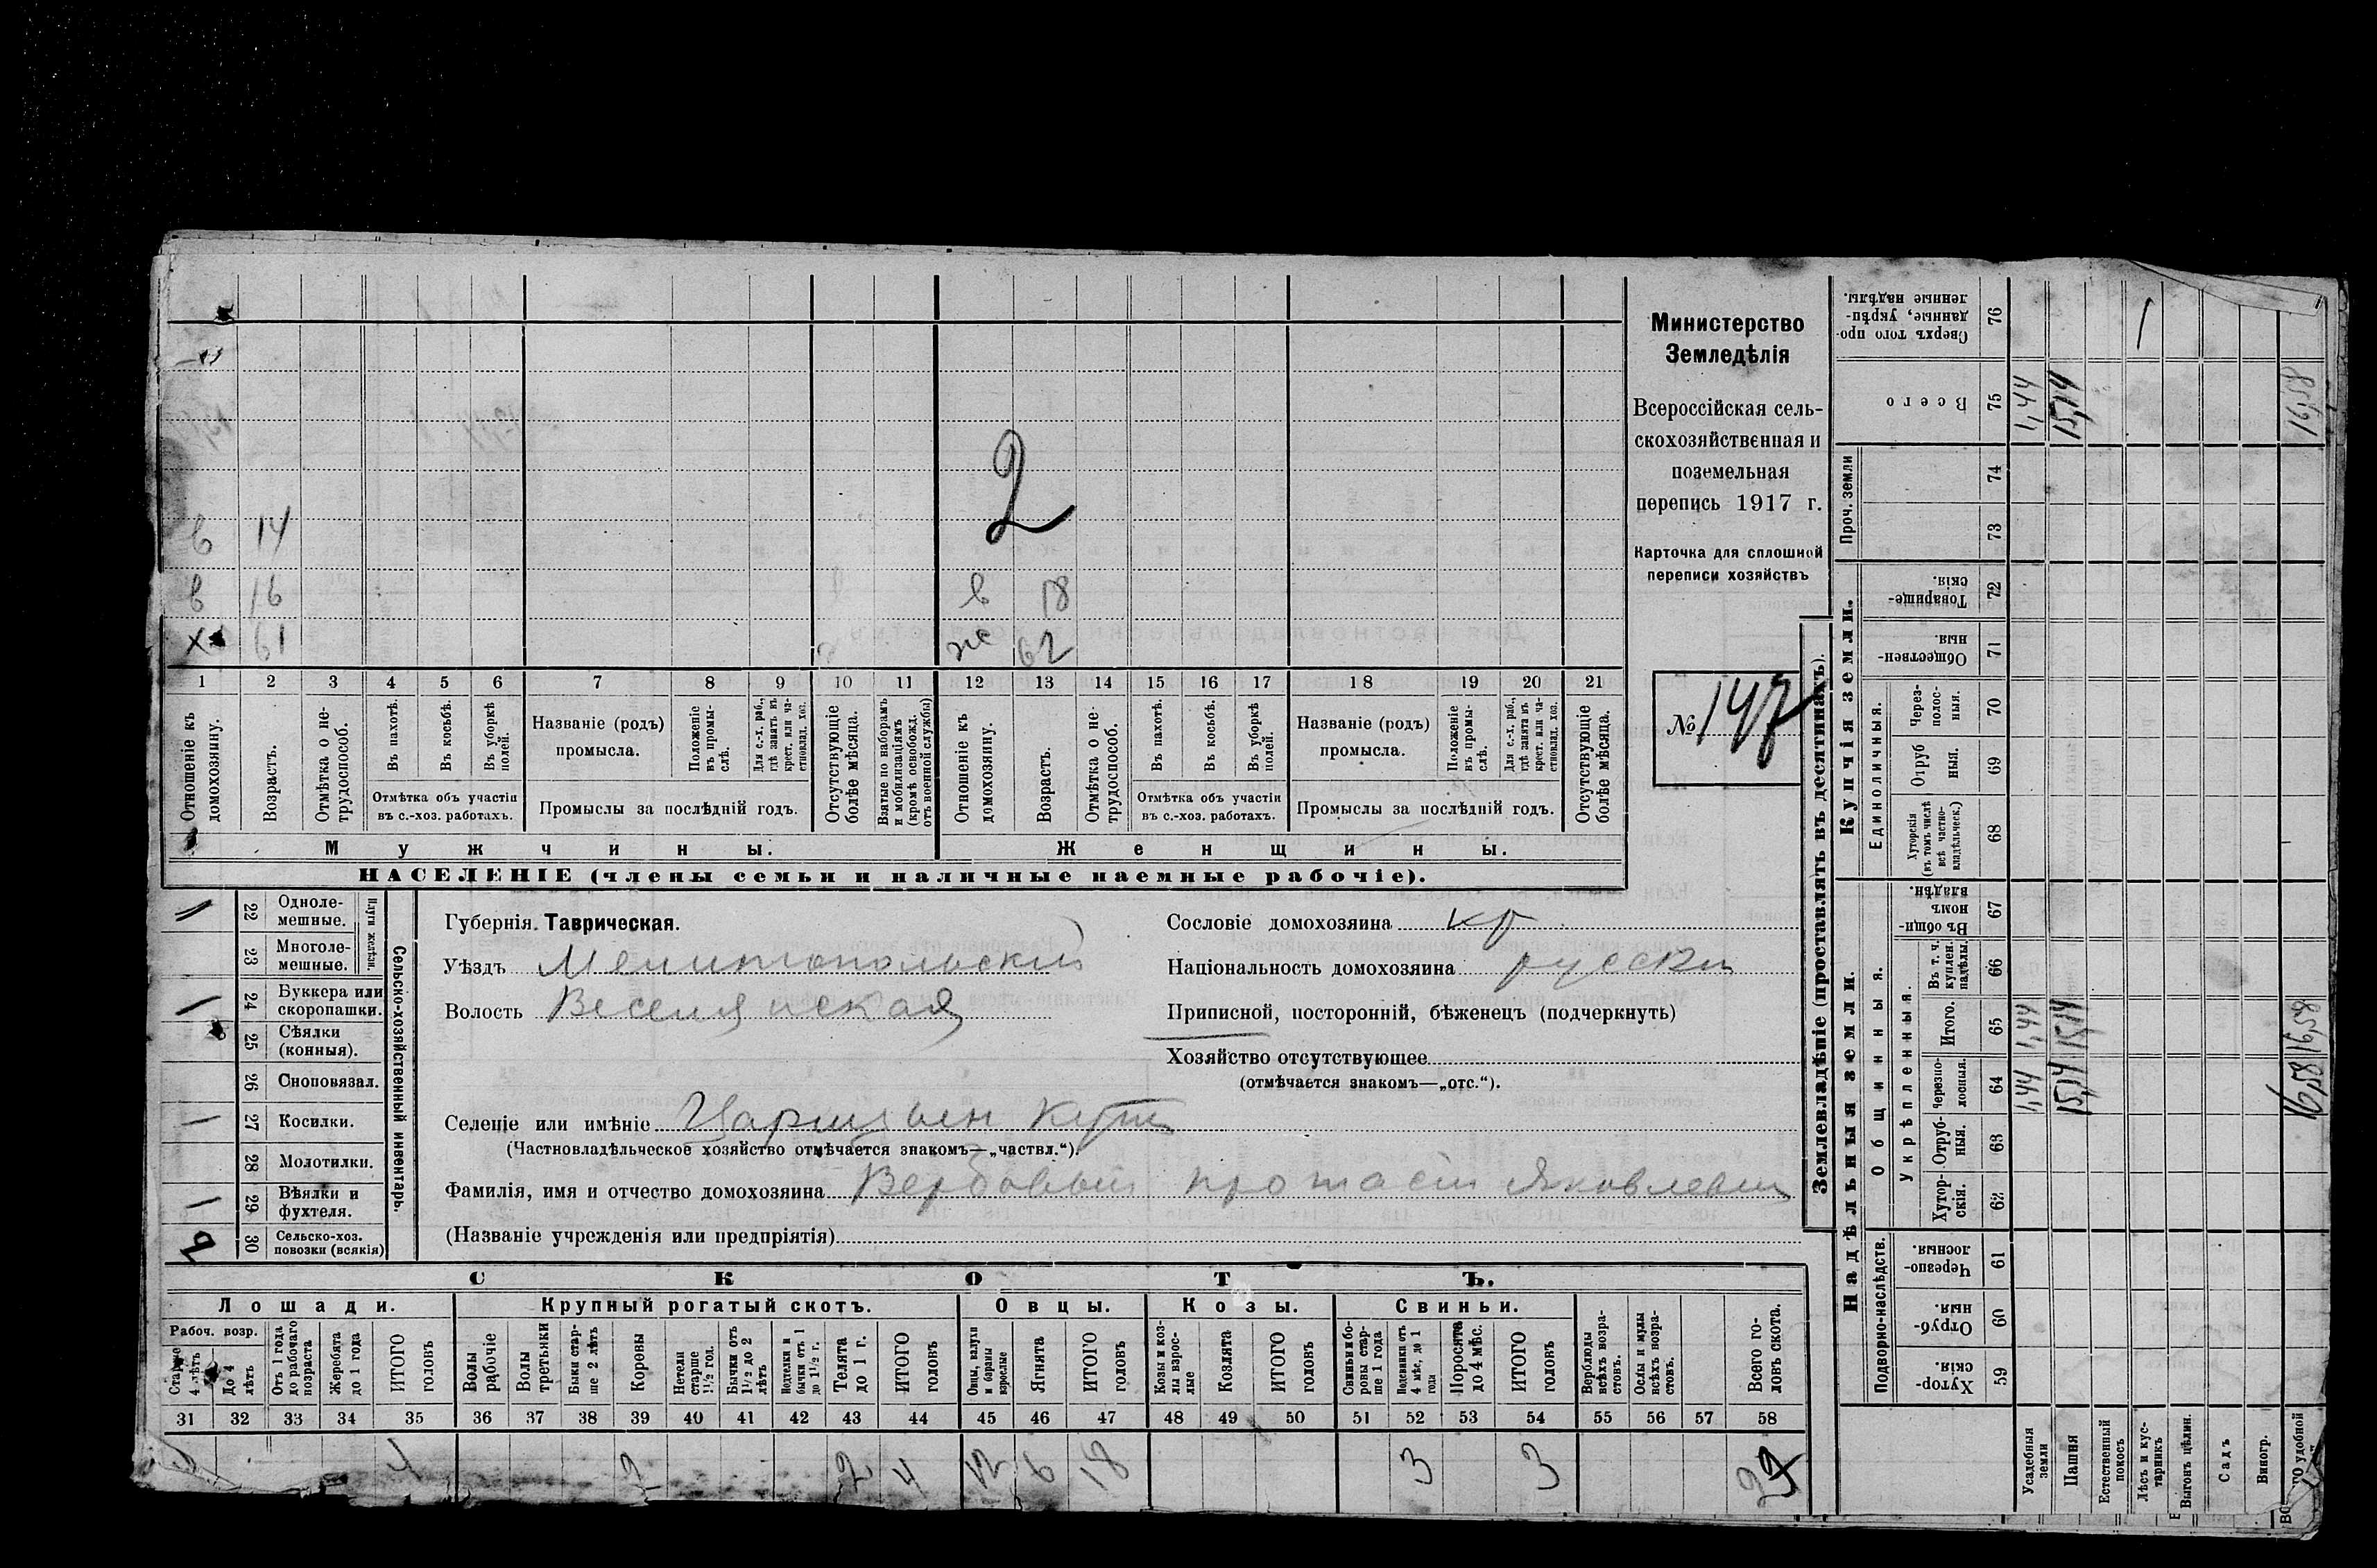 Министерство
Земледѣлія
Всероссійская сель-
скохозяйственная и
поземельная
перепись 1917 г.
Карточка для сплошной
переписи хозяйствъ
№ 147
2
в 14
в 16 в 18
х 61 ж 62
1 2 3 4 5 6 7 8 9 10 11 12 13 14 15 16 17 18 19 20 21
Отношеніе къ домохозяину.
Возрастъ.
Отмѣтка о не-трудоспособ.
Въ пахотѣ.
Въ косьбѣ.
Въ уборкѣ полей.
Отмѣтка объ участіи
въ с.-хоз. работахъ.
Названіе (родъ)
промысла.
Положеніе въ промы-слѣ.
Для с.-х. раб., гдѣ занятъ въ крест. или ча-стновлад. хоз.
Промыслы за послѣдній годъ.
Отсутствующіе болѣе мѣсяца.
Взятые по наборамъ и мобилизаціямъ (кромѣ освобожд. отъ военной службы)
Отношеніе къ домохозяину.
Возрастъ.
Отмѣтка о не-трудоспособ.
Въ пахотѣ.
Въ косьбѣ.
Въ уборкѣ полей.
Отмѣтка объ участіи
въ с.-хоз. работахъ.
Названіе (родъ)
промысла.
Положеніе въ промы-слѣ.
Для с.-х. раб., гдѣ занята въ крест. или ча-стновлад. хоз.
Промыслы за послѣдній годъ.
Отсутствующіе болѣе мѣсяца.
Мужчины. Женщины.
НАСЕЛЕНІЕ (члены семьи и наличные наемные рабочіе).
22 Одноле-мешные.
23 Многоле-мешные.
Плуги желѣзн.
24 Буккера или скоропашки.
25 Сѣялки (конныя).
26 Сноповязал.
27 Косилки.
28 Молотилки.
29 Вѣялки и фухтеля.
30 Сельско-хоз. повозки (всякія)
Сельско-хозяйственный инвентарь.
Губернія Таврическая.
Уѣздъ Мелитопольскій
Волость Веселянская
Селеніе или имѣніе Царицын Кут
(Частновладѣльческое хозяйство отмѣчается знакомъ—„частвл.“).
Фамилія, имя и отчество домохозяина Вербовый Протасій Яковлевич
(Названіе учрежденія или предпріятія)
Сословіе домохозяина кр
Національность домохозяина русскій
Приписной, посторонній, бѣженецъ (подчеркнуть)
Хозяйство отсутствующее
(отмѣчается знакомъ—„отс.“).
СКОТЪ.
Лошади. Крупный рогатый скотъ. Овцы. Козы. Свиньи.
Рабоч. возр.
Старше 4 лѣтъ
До 4 лѣтъ
Отъ 1 года до рабочаго возраста
Жеребята до 1 года
ИТОГО головъ
Волы рабочіе
Волы третьяки
Быки стар-ше 2 лѣтъ
Коровы
Нетели старше 1½ год.
Бычки отъ 1½ до 2 лѣтъ
Подтелки и бычки отъ 1 до 1½ г.
Телята до 1 г.
ИТОГО головъ
Овцы, валухи и бараны взрослые
Ягнята
ИТОГО головъ
Козы и коз-лы взрос-лые
Козлята
ИТОГО головъ
Свиньи и бо-ровы стар-ше 1 года
Подсвинки отъ 4 мѣс. до 1 года
Поросята до 4 мѣс.
ИТОГО головъ
Верблюды всѣхъ возра-стовъ.
Ослы и мулы всѣхъ возра-стовъ.
Всего го-ловъ скота.
31 32 33 34 35 36 37 38 39 40 41 42 43 44 45 46 47 48 49 50 51 52 53 54 55 56 57 58
4 2 2 4 12 6 18 3 3 29
Землевладѣніе (проставлять въ десятинахъ).
Надѣльныя земли. Купчія земли.
Подворно-наслѣдств.
Общинныя.
Укрѣпленныя.
Единоличныя.
Проч. земли
59 Хутор-скія.
60 Отруб-ныя.
61 Черезпо-лосныя.
62 Хутор-скія.
63 Отруб-ныя.
64 Черезпо-лосныя.
65 Итого.
66 Въ т. ч. куплен. надѣлы.
67 Въ общи-номъ владѣн.
68 Хуторскія (въ томъ числѣ всѣ частно-владѣльческ.)
69 Отруб ныя.
70 Через-полос-ныя.
71 Обществен-ныя.
72 Товарище-скія.
73
74
75 Всего
76 Сверхъ того про-данные, укрѣп-ленные надѣлы.
Усадебныя земли 1,44 1,44 1,44
Пашня 15,14 15,14 15,14
Естественный покосъ
Лѣсъ и кус-тарникъ
Выгонъ цѣлин.
Садъ
Виногр.
16,58 16,58 16,58